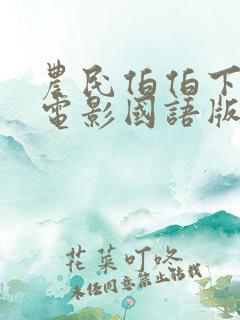 農民伯伯下
電影國語版
花菜叮咚
未经同意禁止转载